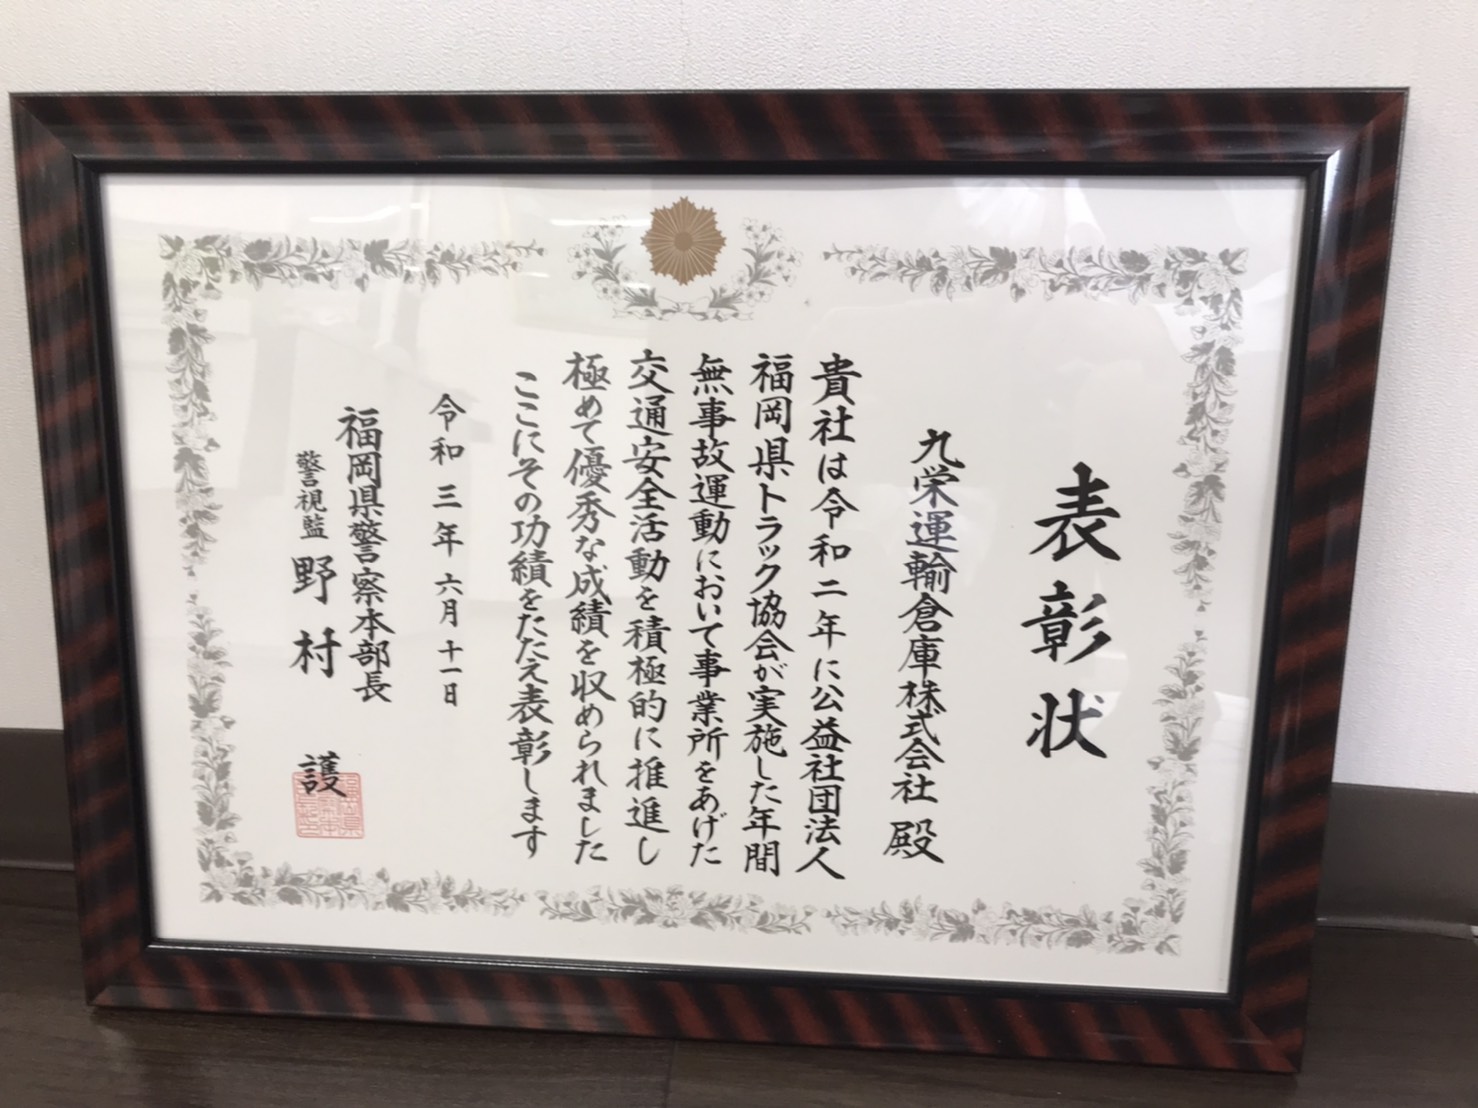 表彰状
九栄運輸倉庫株式会社 殿
貴社は令和二年に公益社団法人
福岡県トラック協会が実施した年間
無事故運動において事業所をあげた
交通安全活動を積極的に推進し
極めて優秀な成績を収められました
ここにその功績をたたえ表彰します
令和三年六月十一日
福岡県警察本部長
警視監 野村 護